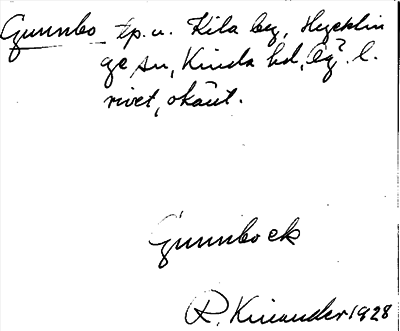 Gunnbo tp. u. Kila by, Hycklin
ge sn, Kinda hd, Ög? l.
rivet, okänt.
Gunnbock
R. Kinander 1928